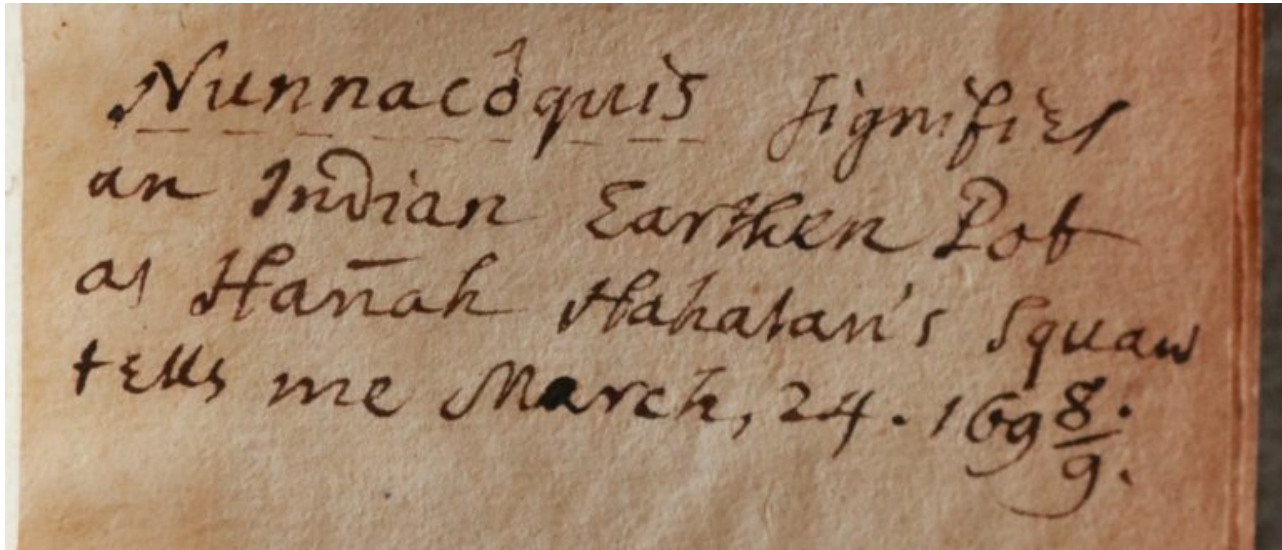 Nunnacôquis signifies
an Indian Earthen Pot
as Hañah Hahatan's Squaw
tells me March, 24. 169 8/9.